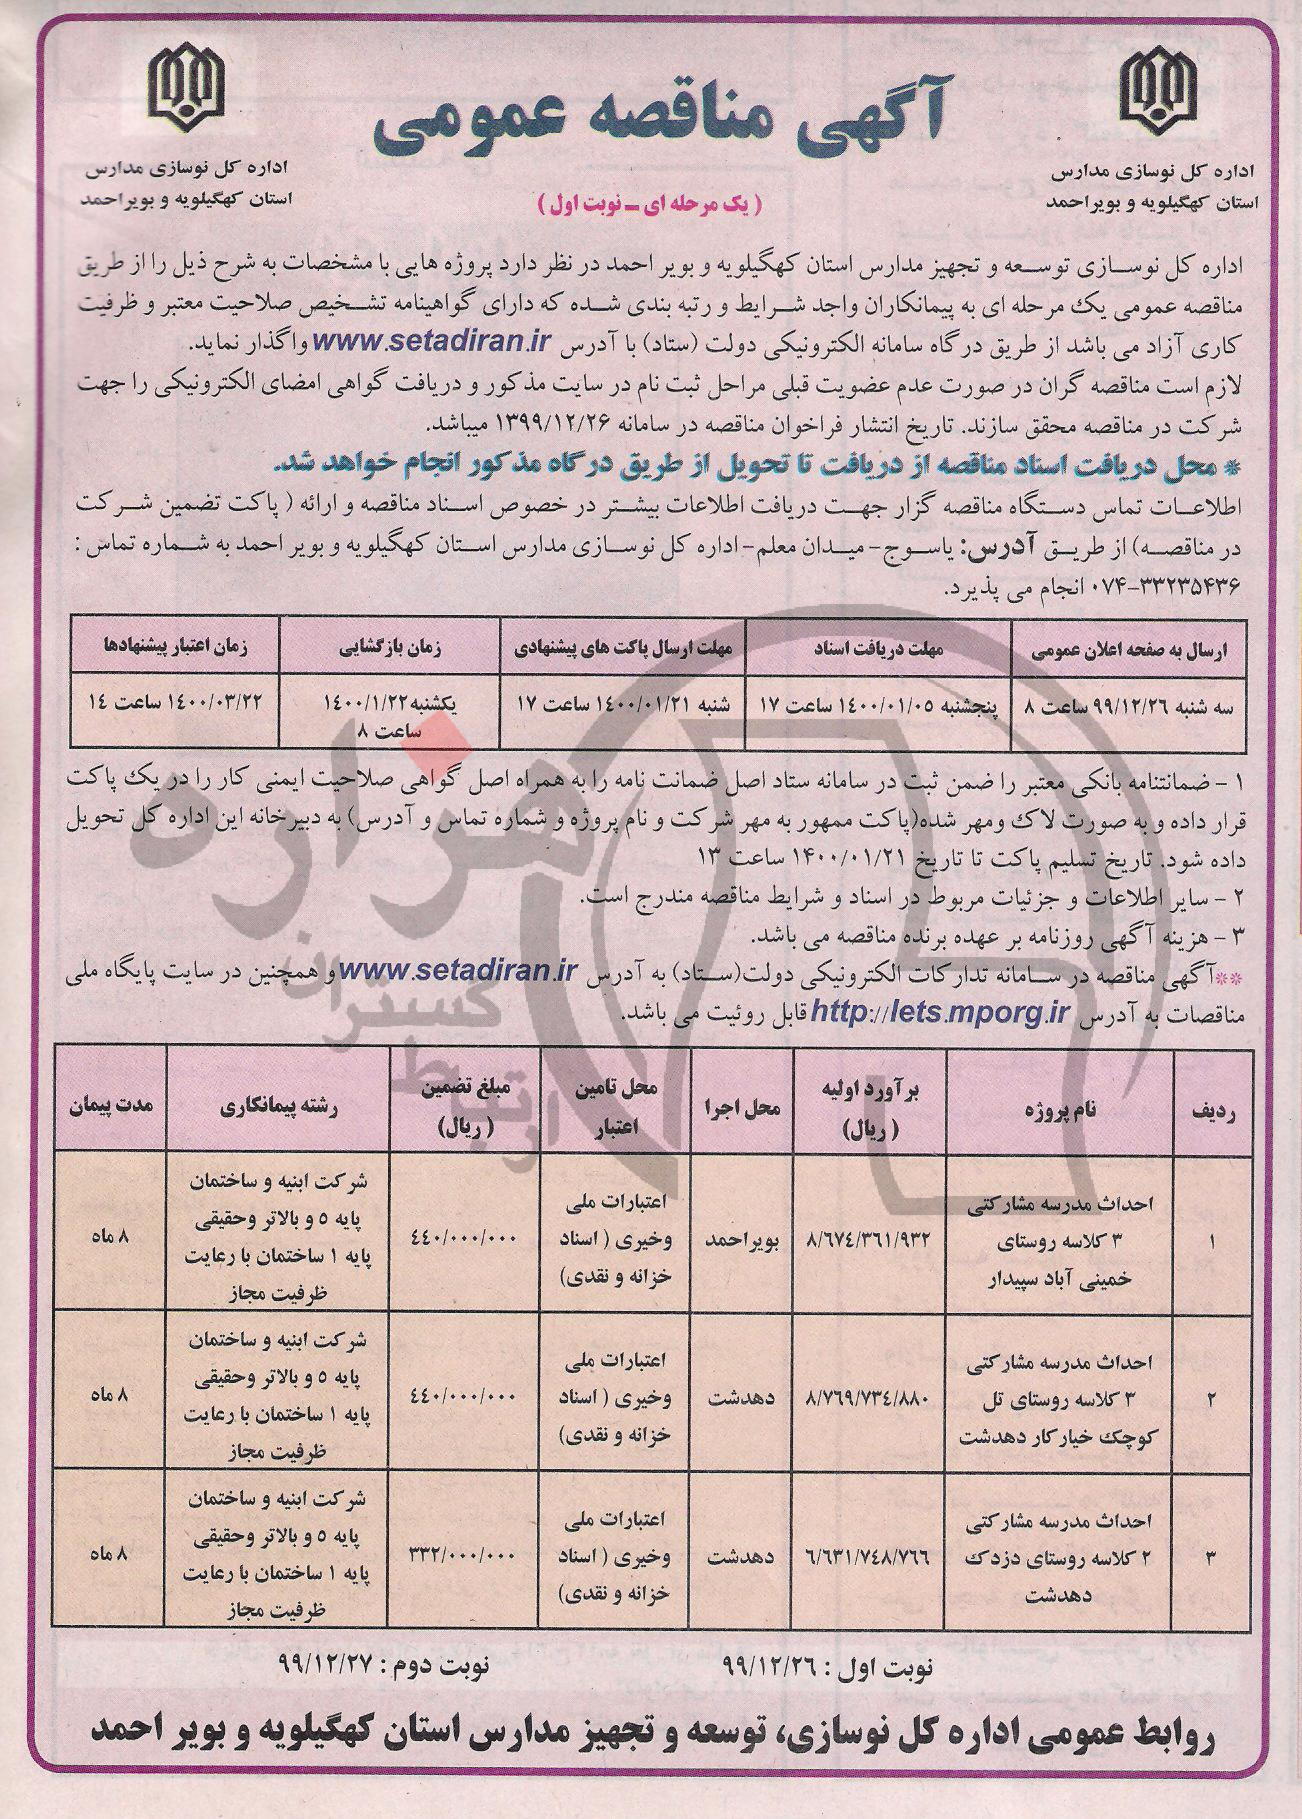 آگهی مناقصه عمومی
اداره کل نوسازی مدارس
استان کهگیلویه و بویراحمد
اداره کل نوسازی مدارس
استان کهگیلویه و بویراحمد
( یک مرحله ای ـ نوبت اول )
اداره کل نوسازی توسعه و تجهیز مدارس استان کهگیلویه و بویر احمد در نظر دارد پروژه هایی با مشخصات به شرح ذیل را از طریق
مناقصه عمومی یک مرحله ای به پیمانکاران واجد شرایط و رتبه بندی شده که دارای گواهینامه تشخیص صلاحیت معتبر و ظرفیت
کاری آزاد می باشد از طریق درگاه سامانه الکترونیکی دولت (ستاد) با آدرس www.setadiran.ir واگذار نماید.
لازم است مناقصه گران در صورت عدم عضویت قبلی مراحل ثبت نام در سایت مذکور و دریافت گواهی امضای الکترونیکی را جهت
شرکت در مناقصه محقق سازند. تاریخ انتشار فراخوان مناقصه در سامانه ۱۳۹۹/۱۲/۲۶ میباشد.
* محل دریافت اسناد مناقصه از دریافت تا تحویل از طریق درگاه مذکور انجام خواهد شد.
اطلاعات تماس دستگاه مناقصه گزار جهت دریافت اطلاعات بیشتر در خصوص اسناد مناقصه و ارائه ( پاکت تضمین شرکت
در مناقصه) از طریق آدرس: یاسوج- میدان معلم- اداره کل نوسازی مدارس استان کهگیلویه و بویر احمد به شماره تماس :
۰۷۴-۳۳۲۳۵۴۳۶ انجام می پذیرد.
ارسال به صفحه اعلان عمومی مهلت دریافت اسناد مهلت ارسال پاکت های پیشنهادی زمان بازگشایی زمان اعتبار پیشنهادها
سه شنبه ۹۹/۱۲/۲۶ ساعت ۸ پنجشنبه ۱۴۰۰/۰۱/۰۵ ساعت ۱۷ شنبه ۱۴۰۰/۰۱/۲۱ ساعت ۱۷ یکشنبه ۱۴۰۰/۱/۲۲ ۱۴۰۰/۰۳/۲۲ ساعت ۱۴
ساعت ۸
۱ - ضمانتنامه بانکی معتبر را ضمن ثبت در سامانه ستاد اصل ضمانت نامه را به همراه اصل گواهی صلاحیت ایمنی کار را در یک پاکت
قرار داده و به صورت لاک ومهر شده(پاکت ممهور به مهر شرکت و نام پروژه و شماره تماس و آدرس) به دبیرخانه این اداره کل تحویل
داده شود. تاریخ تسلیم پاکت تا تاریخ ۱۴۰۰/۰۱/۲۱ ساعت ۱۳
۲ - سایر اطلاعات و جزئیات مربوط در اسناد و شرایط مناقصه مندرج است.
۳ - هزینه آگهی روزنامه بر عهده برنده مناقصه می باشد.
**آگهی مناقصه در سامانه تدارکات الکترونیکی دولت(ستاد) به آدرس www.setadiran.ir و همچنین در سایت پایگاه ملی
مناقصات به آدرس http://lets.mporg.ir قابل روئیت می باشد.
ردیف نام پروژه برآورد اولیه (ریال) محل اجرا محل تامین اعتبار مبلغ تضمین (ریال) رشته پیمانکاری مدت پیمان
۱ احداث مدرسه مشارکتی ۳ کلاسه روستای خمینی آباد سپیدار ۸/۶۷٤/۳۶۱/۹۳۲ بویراحمد اعتبارات ملی وخیری ( اسناد خزانه و نقدی) ٤٤۰/۰۰۰/۰۰۰ شرکت ابنیه و ساختمان پایه ۵ و بالاتر وحقیقی پایه ۱ ساختمان با رعایت ظرفیت مجاز ۸ ماه
۲ احداث مدرسه مشارکتی ۳ کلاسه روستای تل کوچک خیارکار دهدشت ۸/۷۶۹/۷۳٤/۸۸۰ دهدشت اعتبارات ملی وخیری ( اسناد خزانه و نقدی) ٤٤۰/۰۰۰/۰۰۰ شرکت ابنیه و ساختمان پایه ۵ و بالاتر وحقیقی پایه ۱ ساختمان با رعایت ظرفیت مجاز ۸ ماه
۳ احداث مدرسه مشارکتی ۲ کلاسه روستای دزدک دهدشت ۶/۶۳۱/۷٤۸/۷۶۶ دهدشت اعتبارات ملی وخیری ( اسناد خزانه و نقدی) ۳۳۲/۰۰۰/۰۰۰ شرکت ابنیه و ساختمان پایه ۵ و بالاتر وحقیقی پایه ۱ ساختمان با رعایت ظرفیت مجاز ۸ ماه
نوبت اول : ۹۹/۱۲/۲۶ نوبت دوم : ۹۹/۱۲/۲۷
روابط عمومی اداره کل نوسازی، توسعه و تجهیز مدارس استان کهگیلویه و بویر احمد
هزاره
گستران
ارتباط